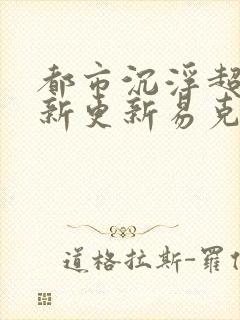 都市沉浮超
新更新易克
道格拉斯-羅